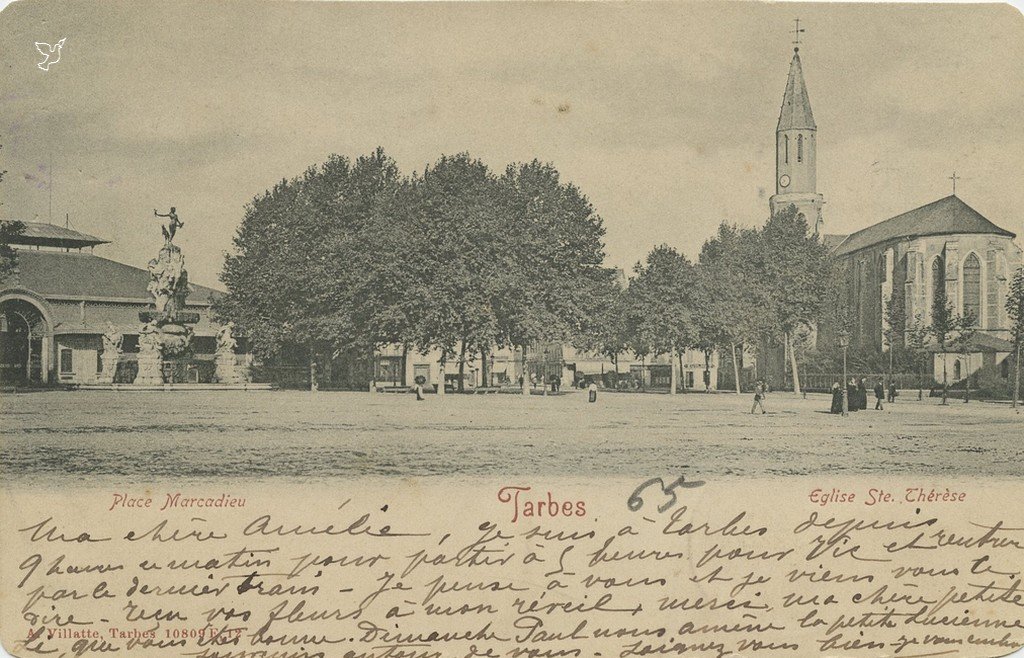 Place Marcadieu
Tarbes
65
Eglise Ste. Thérèse
Ma chère Amélie, je suis à Tarbes depuis
9 heures ce matin pour partir à 5 heures pour Vic et rentrer
par le dernier train - Je pense à vous et je viens vous le
dire - Reçu vos fleurs à mon réveil, merci, ma chère petite
A. Villatte, Tarbes 10809 F. 12
que vous êtes bonne. Dimanche Paul nous amène la petite Lucienne
souvenirs autour de vous. Soignez vous bien je vous